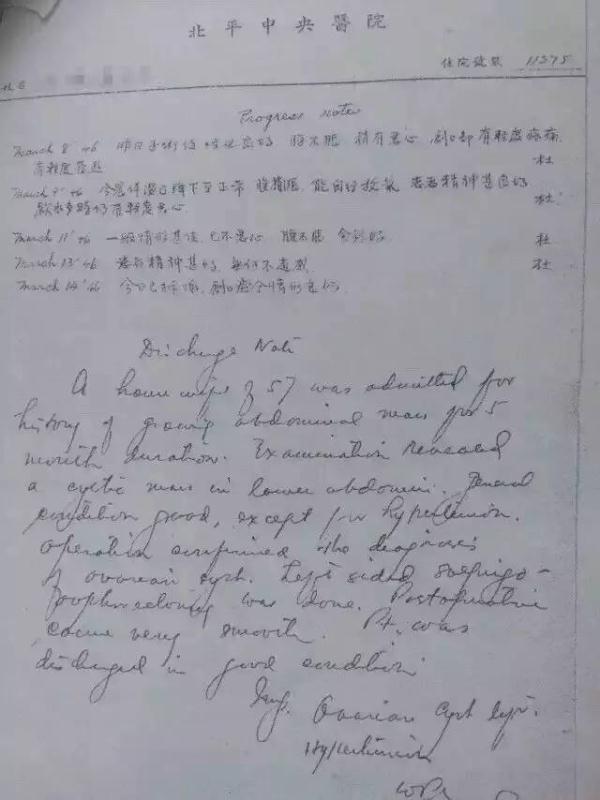 北平中央醫院
住院號數 11375
姓名
Progress Notes
March 8 '46 昨日手術後情況良好 腹不脹 稍有惡心 刻口部有輕度疼痛
杜
March 9 '46 今晨体溫已降下至正常 腹稍脹 能自行放氣 患者精神甚良好
飲水多時仍有輕度惡心 杜
March 11 '46 一般情形甚佳 已不惡心 腹不脹 食慾好 杜
March 13 '46 患者精神甚好 無何不適感 杜
March 14 '46 今日已拆線 刻口癒合情形良好
Discharge Note
A house wife of 57 was admitted for
history of growing abdominal mass for 5
month duration. Examination revealed
a cystic mass in lower abdomen. General
condition good, except for hypertension.
Operation confirmed the diagnosis
of ovarian cyst. Left sided salpingo-
oophorectomy was done. Postoperative
course very smooth. Pt. was
discharged in good condition
Ovarian cyst left.
Hypertension